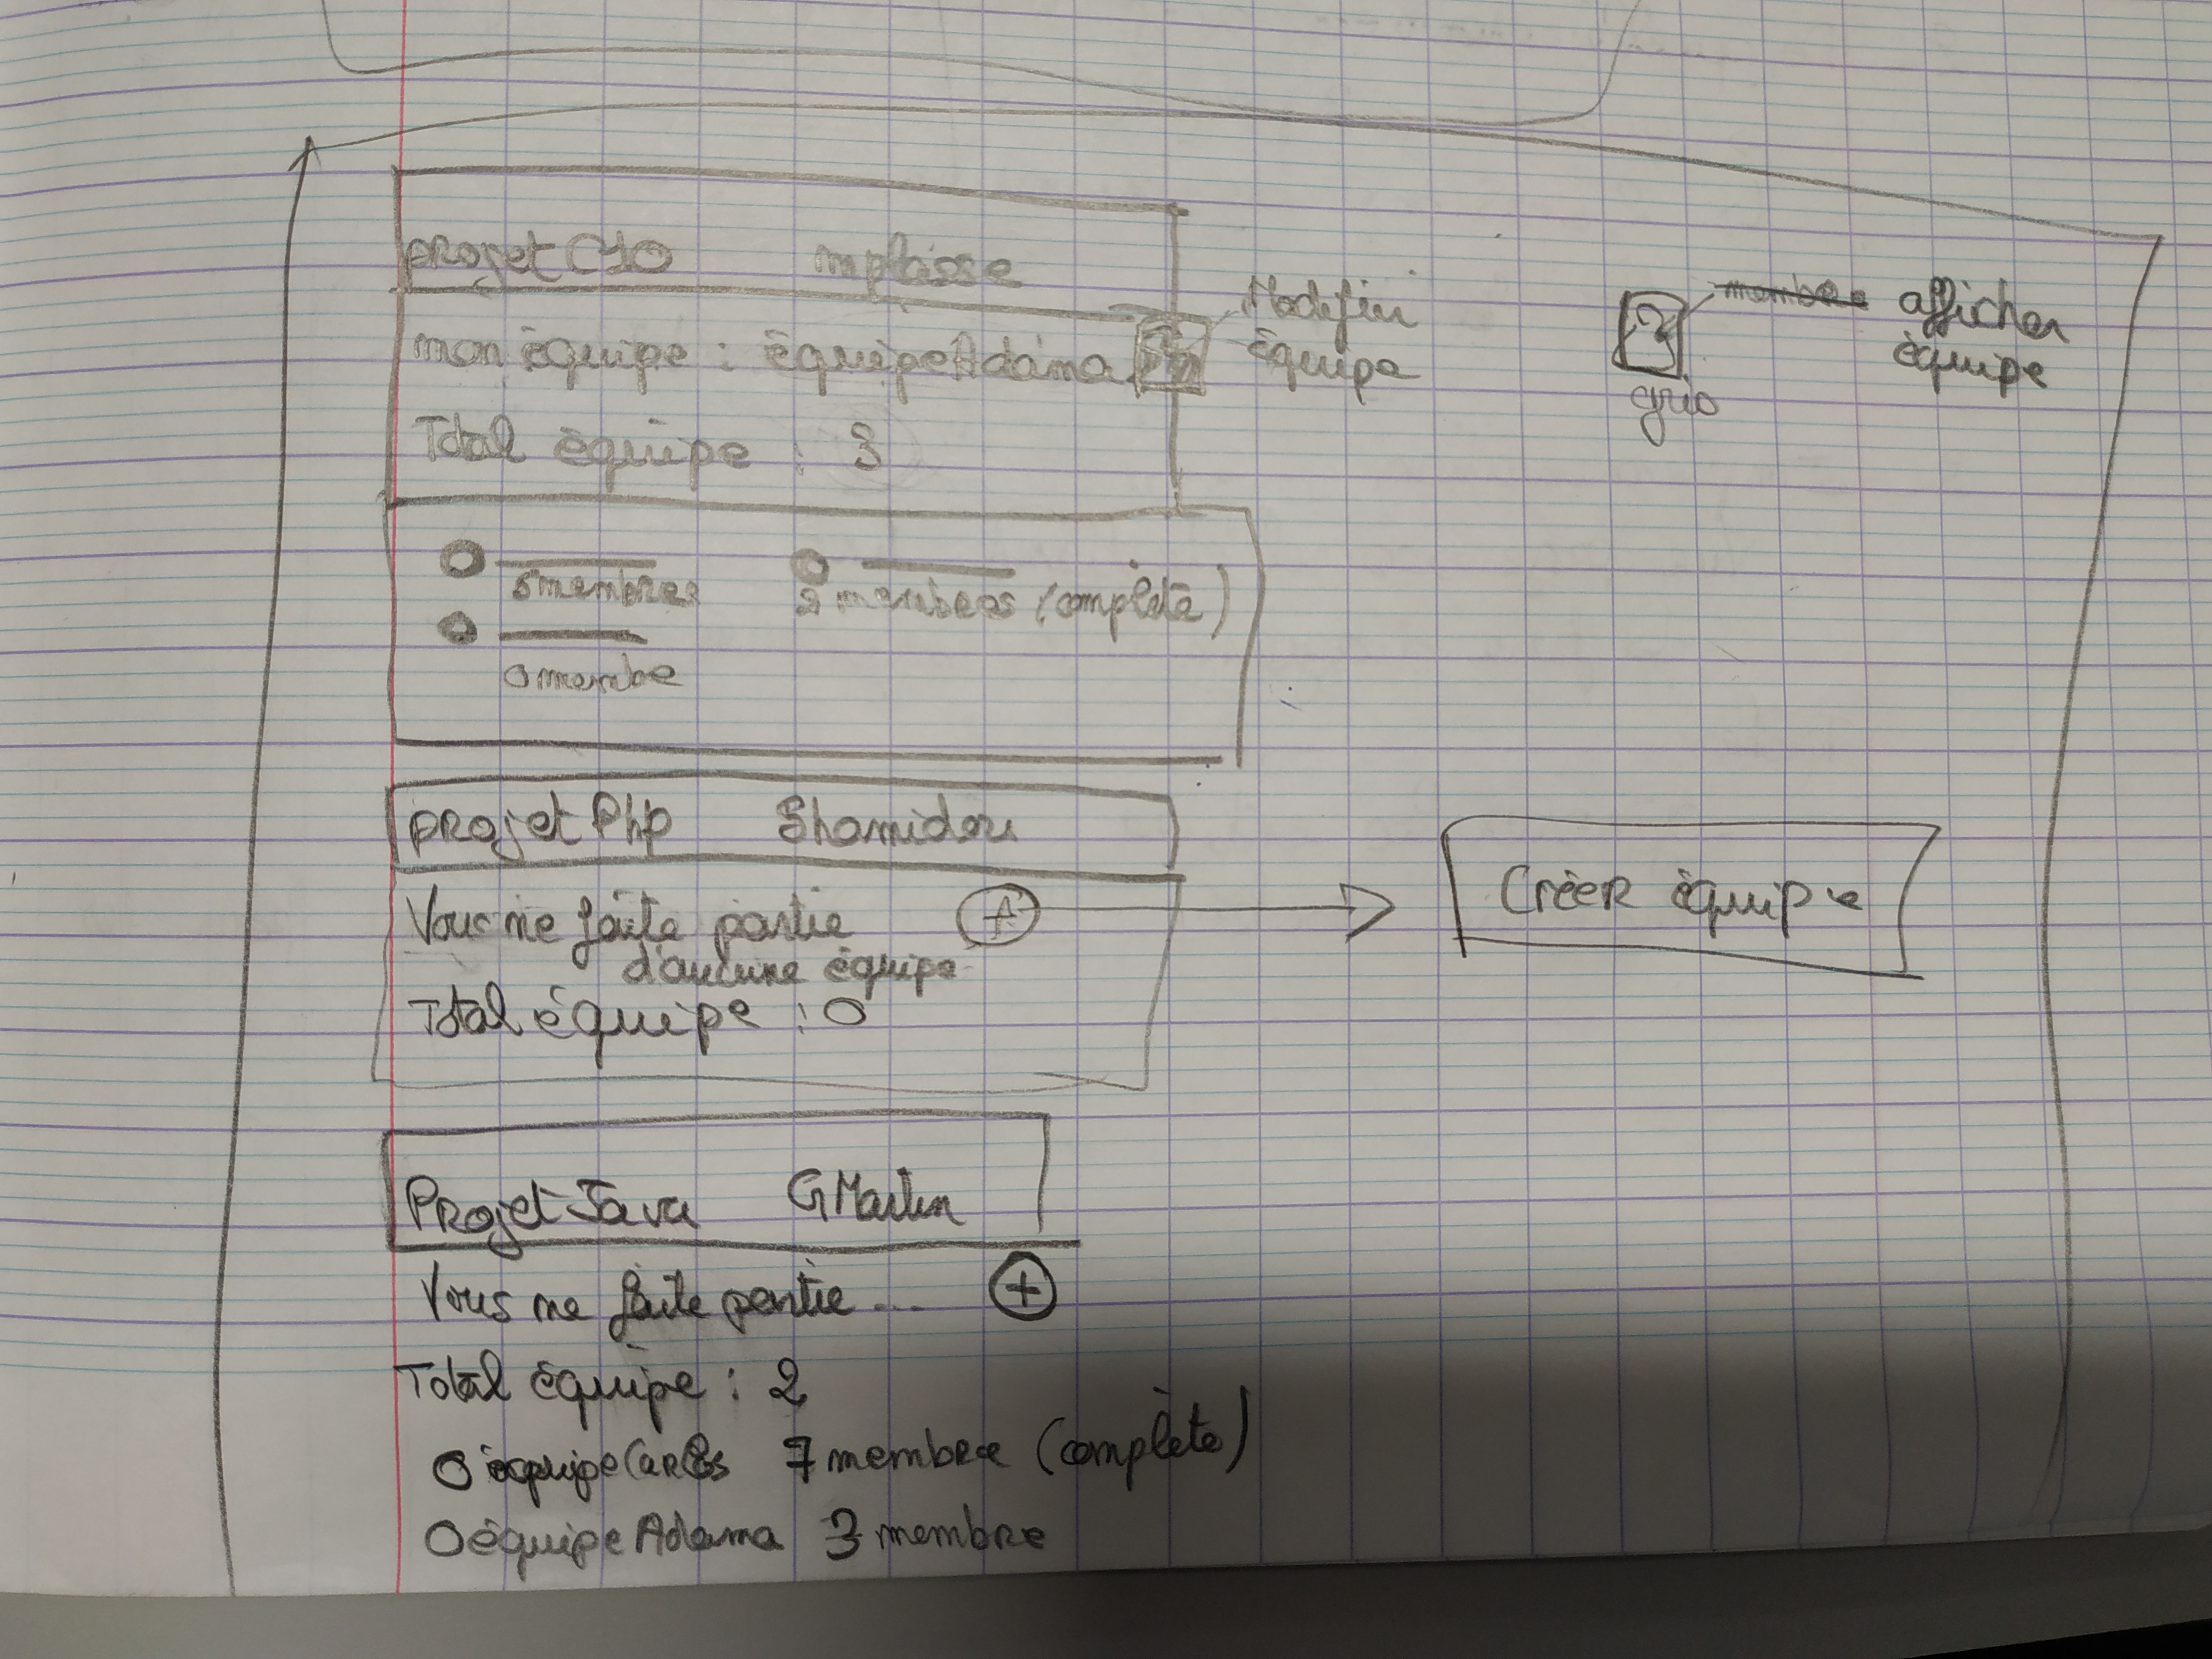 projet C10 mplasse
mon équipe : équipe Adama
Modifier
équipe
afficher
équipe
Total équipe : 3
5 membres
2 membres (complète)
0 membre
projet Php Shamidou
Vous ne faite partie
d'aucune équipe
Total équipe : 0
Créer équipe
Projet Java G Martin
Vous ne faite partie .... +
Total équipe : 2
équipe Carlos 7 membre (complète)
équipe Adama 3 membre